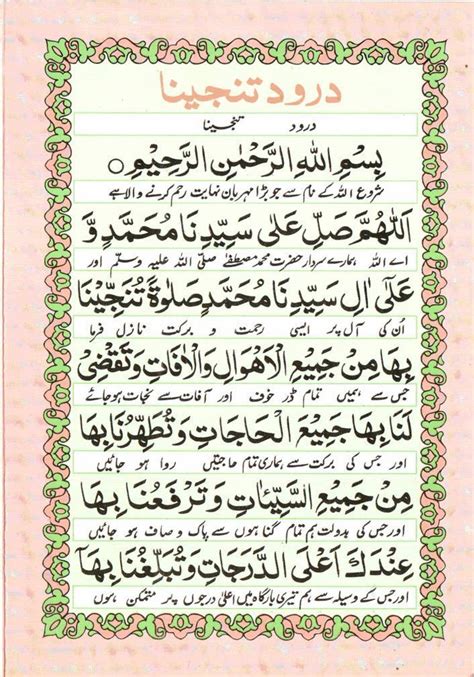 درود تنجینا
درود تنجینا
بِسْمِ اللهِ الرَّحْمٰنِ الرَّحِيْمِ ○
شروع اللہ کے نام سے جو بڑا مہربان نہایت رحم کرنے والا ہے
اَللّٰهُمَّ صَلِّ عَلٰى سَيِّدِنَا مُحَمَّدٍ وَّ
اے اللہ ہمارے سردار حضرت محمد مصطفےٰ صلی اللہ علیہ وسلم اور
عَلٰٓى اٰلِ سَيِّدِنَا مُحَمَّدٍ صَلٰوةً تُنَجِّيْنَا
اُن کی آل پر ایسی رحمت و برکت نازل فرما
بِهَا مِنْ جَمِيْعِ الْاَهْوَالِ وَالْاٰفَاتِ وَتَقْضِىْ
جس سے ہمیں تمام ڈر خوف اور آفات سے نجات ہوجائے
لَنَا بِهَا جَمِيْعَ الْحَاجَاتِ وَتُطَهِّرُنَا بِهَا
اور جس کی برکت سے ہماری تمام حاجتیں روا ہو جائیں
مِنْ جَمِيْعِ السَّيِّاٰتِ وَتَرْفَعُنَا بِهَا
اور جس کی بدولت ہم تمام گناہوں سے پاک و صاف ہو جائیں
عِنْدَكَ اَعْلَى الدَّرَجَاتِ وَتُبَلِّغُنَا بِهَآ
اور جس کے وسیلہ سے ہم تیری بارگاہ میں اعلیٰ درجوں پر متمکن ہوں